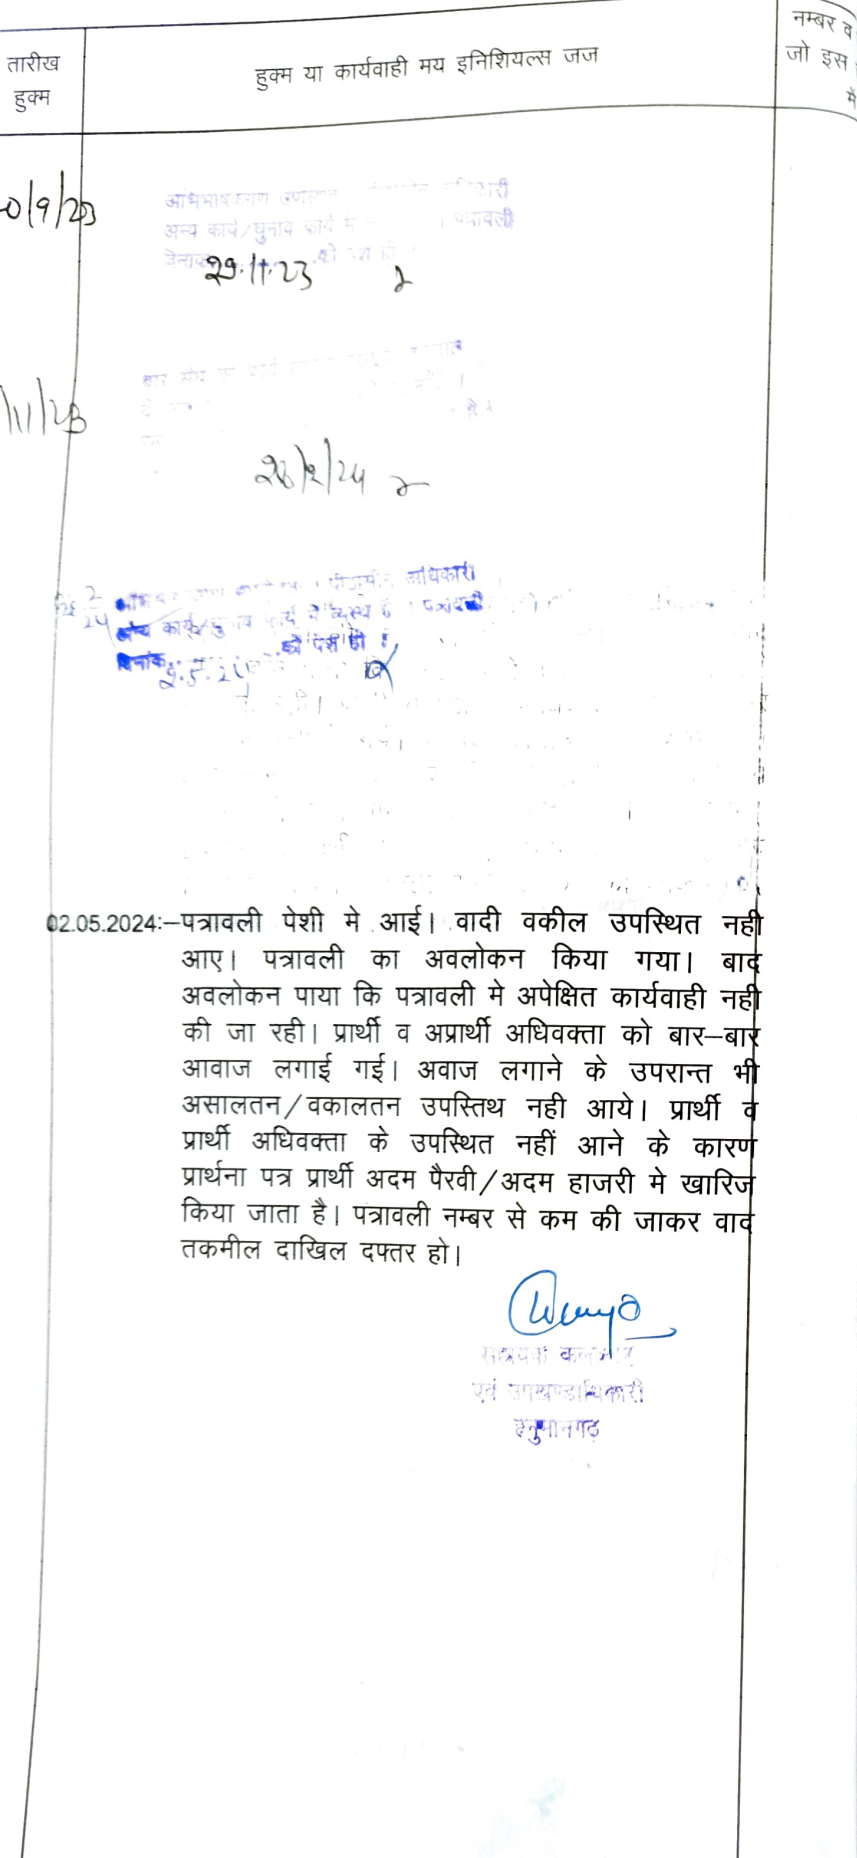 तारीख
हुक्म
हुक्म या कार्यवाही मय इनिशियल्स जज
नम्बर व
जो इस
में
0/9/23
अभिभाषकगण
अन्य कार्य/चुनाव कार्य में पत्रावली
29.11.23
/11/23
बार संघ
28/2/24
28 2/24
पीठासीन अधिकारी
अन्य कार्य/चुनाव कार्य में व्यस्त है। पत्रावली
दिनांक को पेश हो।
2.5.24
02.05.2024:–पत्रावली पेशी मे आई। वादी वकील उपस्थित नही
आए। पत्रावली का अवलोकन किया गया। बाद
अवलोकन पाया कि पत्रावली मे अपेक्षित कार्यवाही नही
की जा रही। प्रार्थी व अप्रार्थी अधिवक्ता को बार–बार
आवाज लगाई गई। अवाज लगाने के उपरान्त भी
असालतन/वकालतन उपस्तिथ नही आये। प्रार्थी व
प्रार्थी अधिवक्ता के उपस्थित नहीं आने के कारण
प्रार्थना पत्र प्रार्थी अदम पैरवी/अदम हाजरी मे खारिज
किया जाता है। पत्रावली नम्बर से कम की जाकर वाद
तकमील दाखिल दफ्तर हो।
सहायक कलक्टर
एवं उपखण्डाधिकारी
हनुमानगढ़